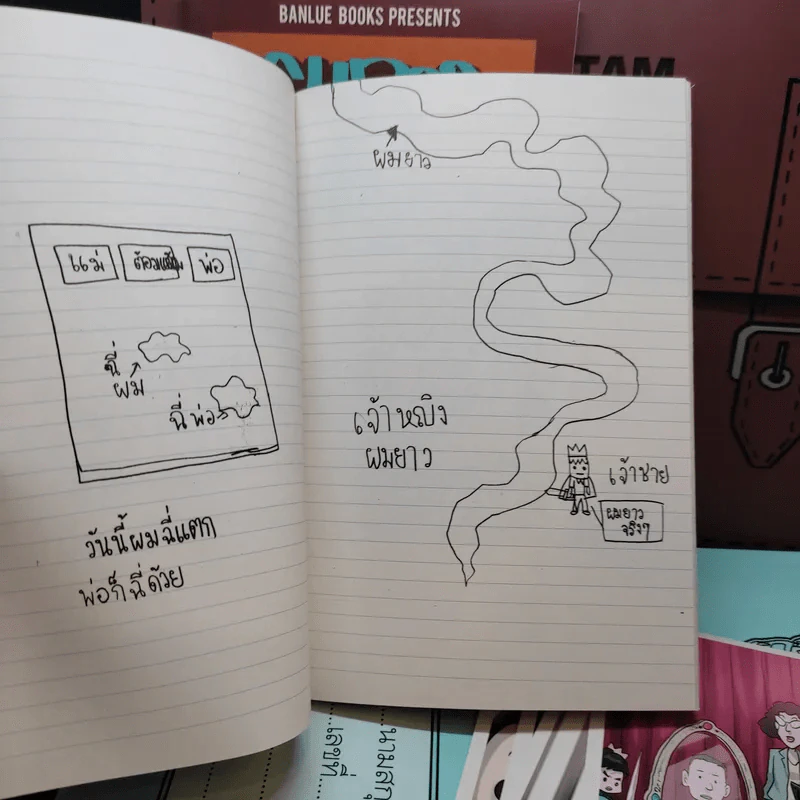 BANLUE BOOKS PRESENTS
TAM
แม่
พ่อ
ฉี่
ผม
ฉี่พ่อ
วันนี้ผมฉี่แตก
พ่อก็ฉี่ด้วย
ผมยาว
เจ้าหญิง
ผมยาว
เจ้าชาย
ผมยาว
จริงๆ
...นามสกุ
...เลขที่...